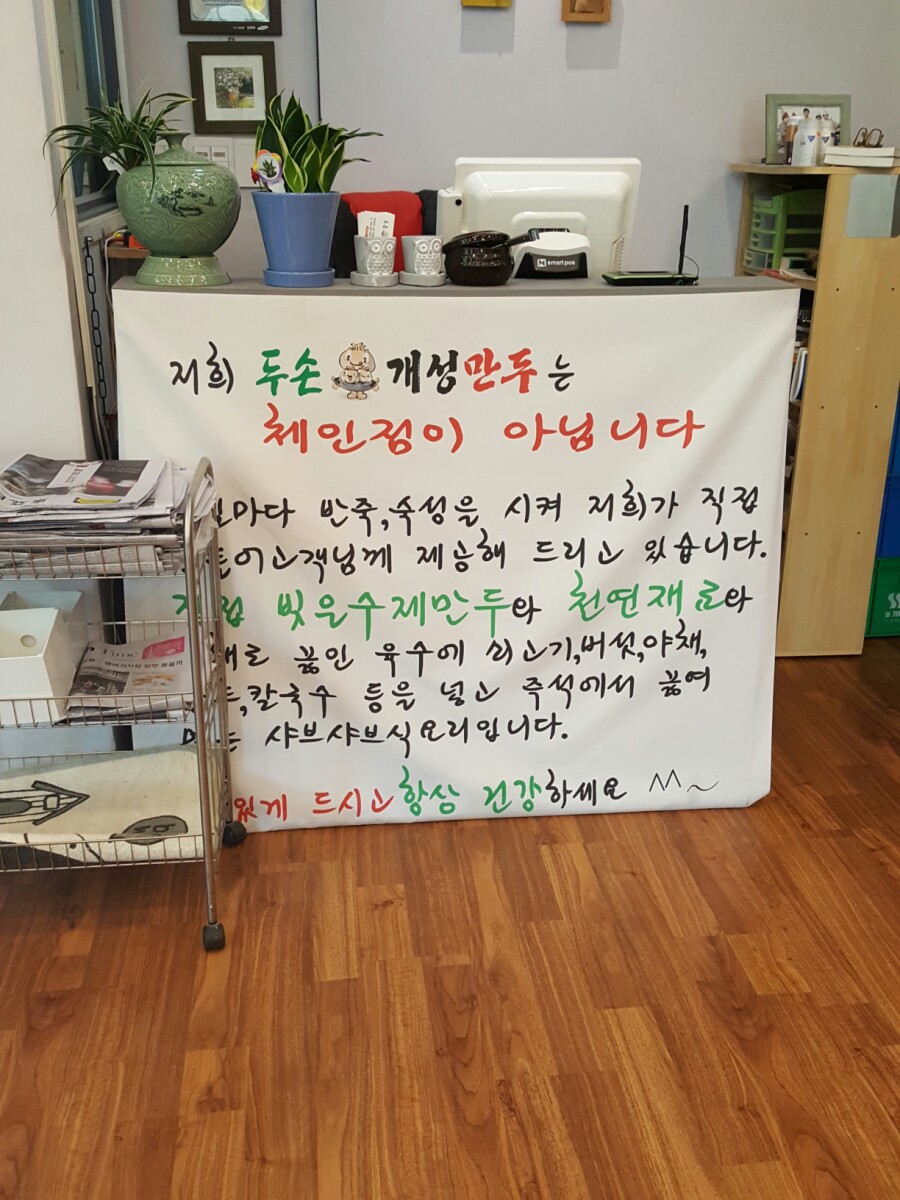 저희 두손 개성만두는
체인점이 아닙니다
마다 반죽,숙성을 시켜 저희가 직접
어고객님께 제공해 드리고 있습니다.
빚은수제만두와 천연재료와
끓인 육수에 쇠고기,버섯,야채,
칼국수 등을 넣고 즉석에서 끓여
샤브샤브식요리입니다.
있게 드시고 항상 건강하세요 ^^~
smartpos